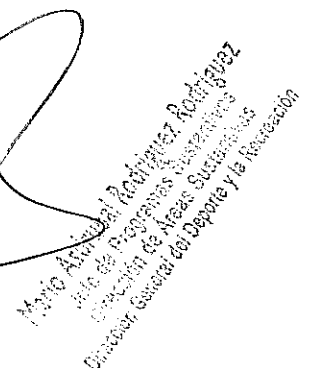 Mario Rodríguez Rodríguez
Jefe de Programas Sustantivos
Dirección de Areas Sustantivas
Dirección General del Deporte y la Recreación